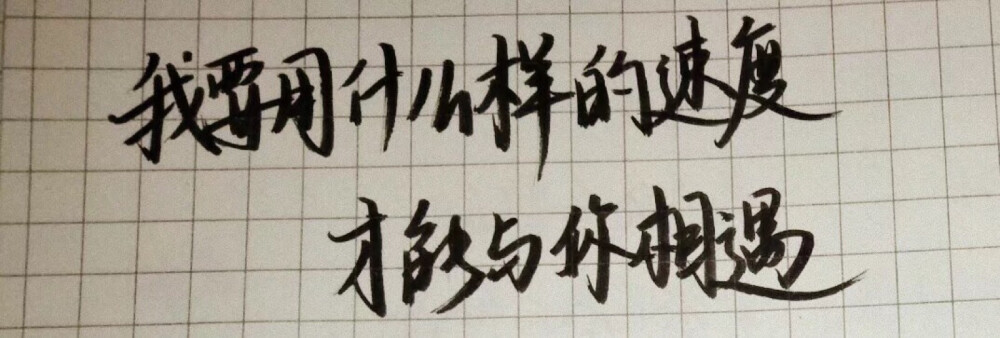 我要用什么样的速度
才能与你相遇